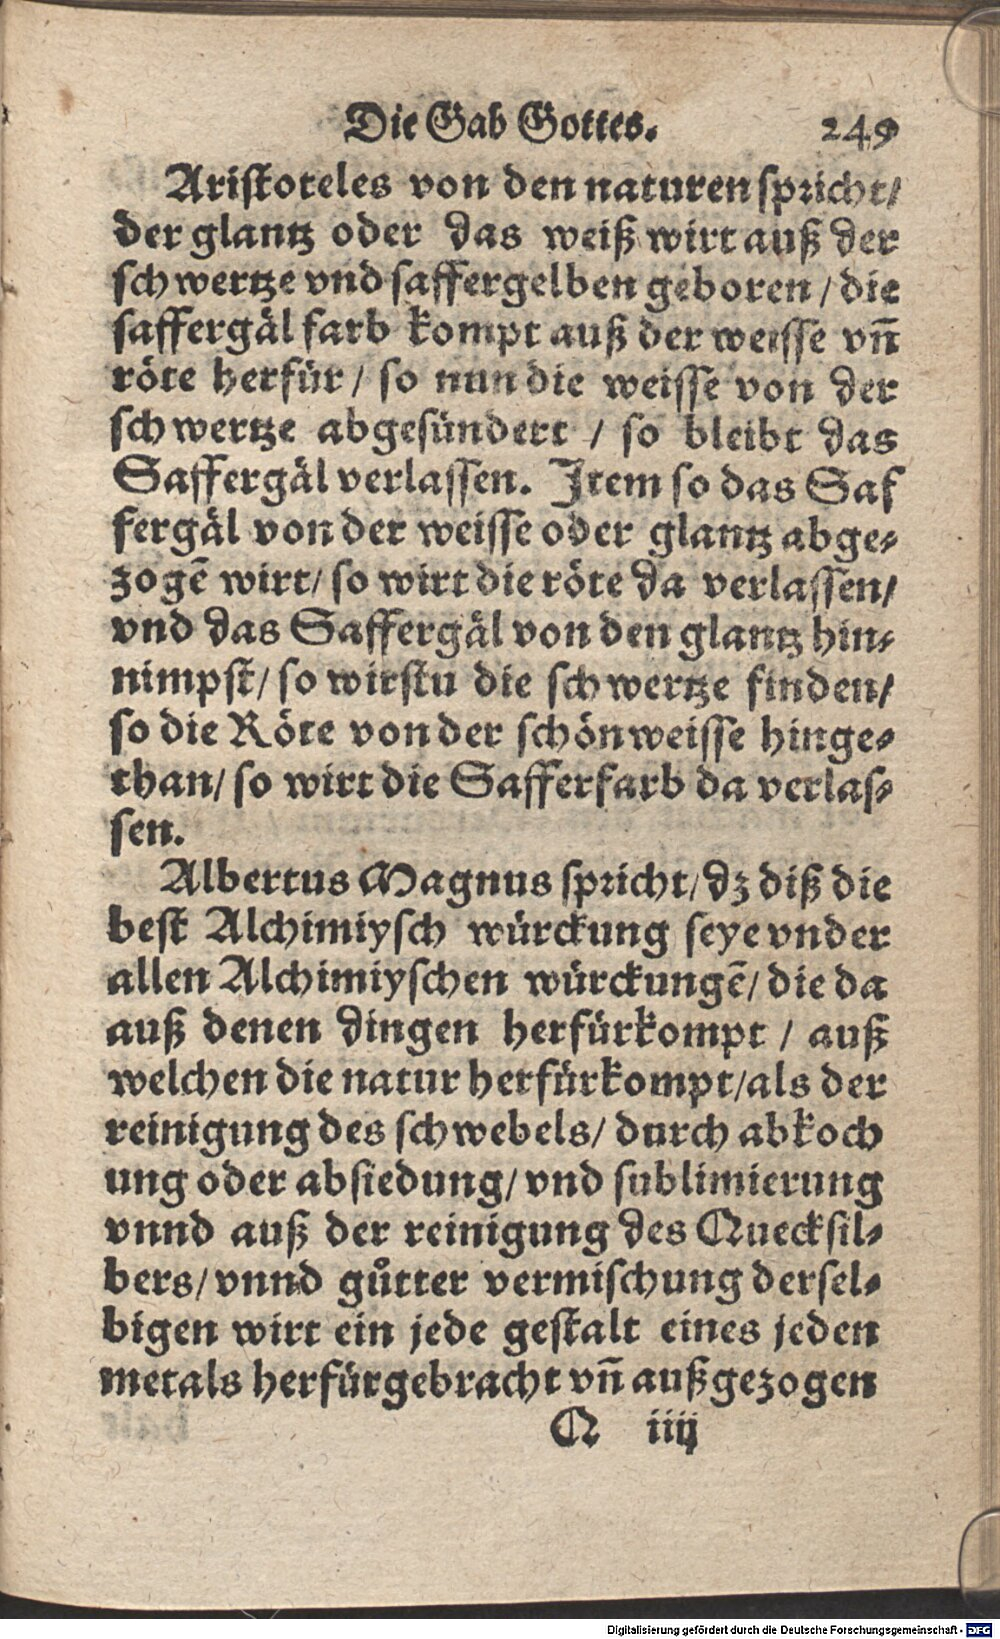 Die Gab Gottes. 249
Aristoteles von den naturen spricht/
der glantz oder das weiß wirt auß der
schwertze vnd saffergelben geboren / die
saffergäl farb kompt auß der weisse vn̄
röte herfür / so nun die weisse von der
schwertze abgesündert / so bleibt das
Saffergäl verlassen. Item so das Saf
fergäl von der weisse oder glantz abge⸗
zogē wirt/ so wirt die röte da verlassen/
vnd das Saffergäl von den glantz hin⸗
nimpst/ so wirstu die schwertze finden/
so die Röte von der schönweisse hinge⸗
than/ so wirt die Safferfarb da verlas⸗
sen.
Albertus Magnus spricht/ dz diß die
best Alchimiysch würckung seye vnder
allen Alchimiyschen würckungē/ die da
auß denen dingen herfürkompt / auß
welchen die natur herfürkompt/als der
reinigung des schwebels/ durch abkoch
ung oder absiedung/ vnd sublimierung
vnnd auß der reinigung des Quecksil⸗
bers/ vnnd gůtter vermischung dersel⸗
bigen wirt ein jede gestalt eines jeden
metals herfürgebracht vn̄ außgezogen
Q iiij
Digitalisierung gefördert durch die Deutsche Forschungsgemeinschaft - DFG